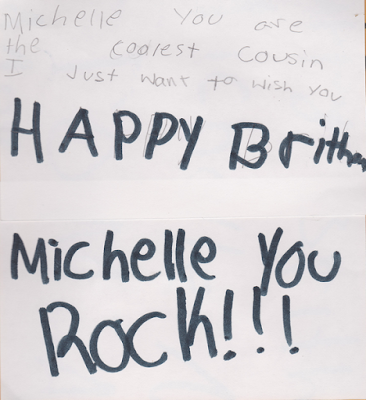 Michelle You are
the coolest cousin
I Just want to wish you
HAPPY Brithe
Michelle You
Rock!!!